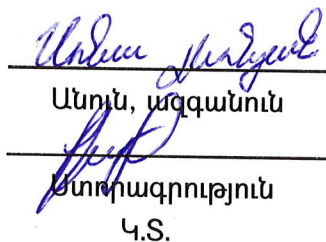 Անուն, ազգանուն
Ստորագրություն
Կ.Տ.